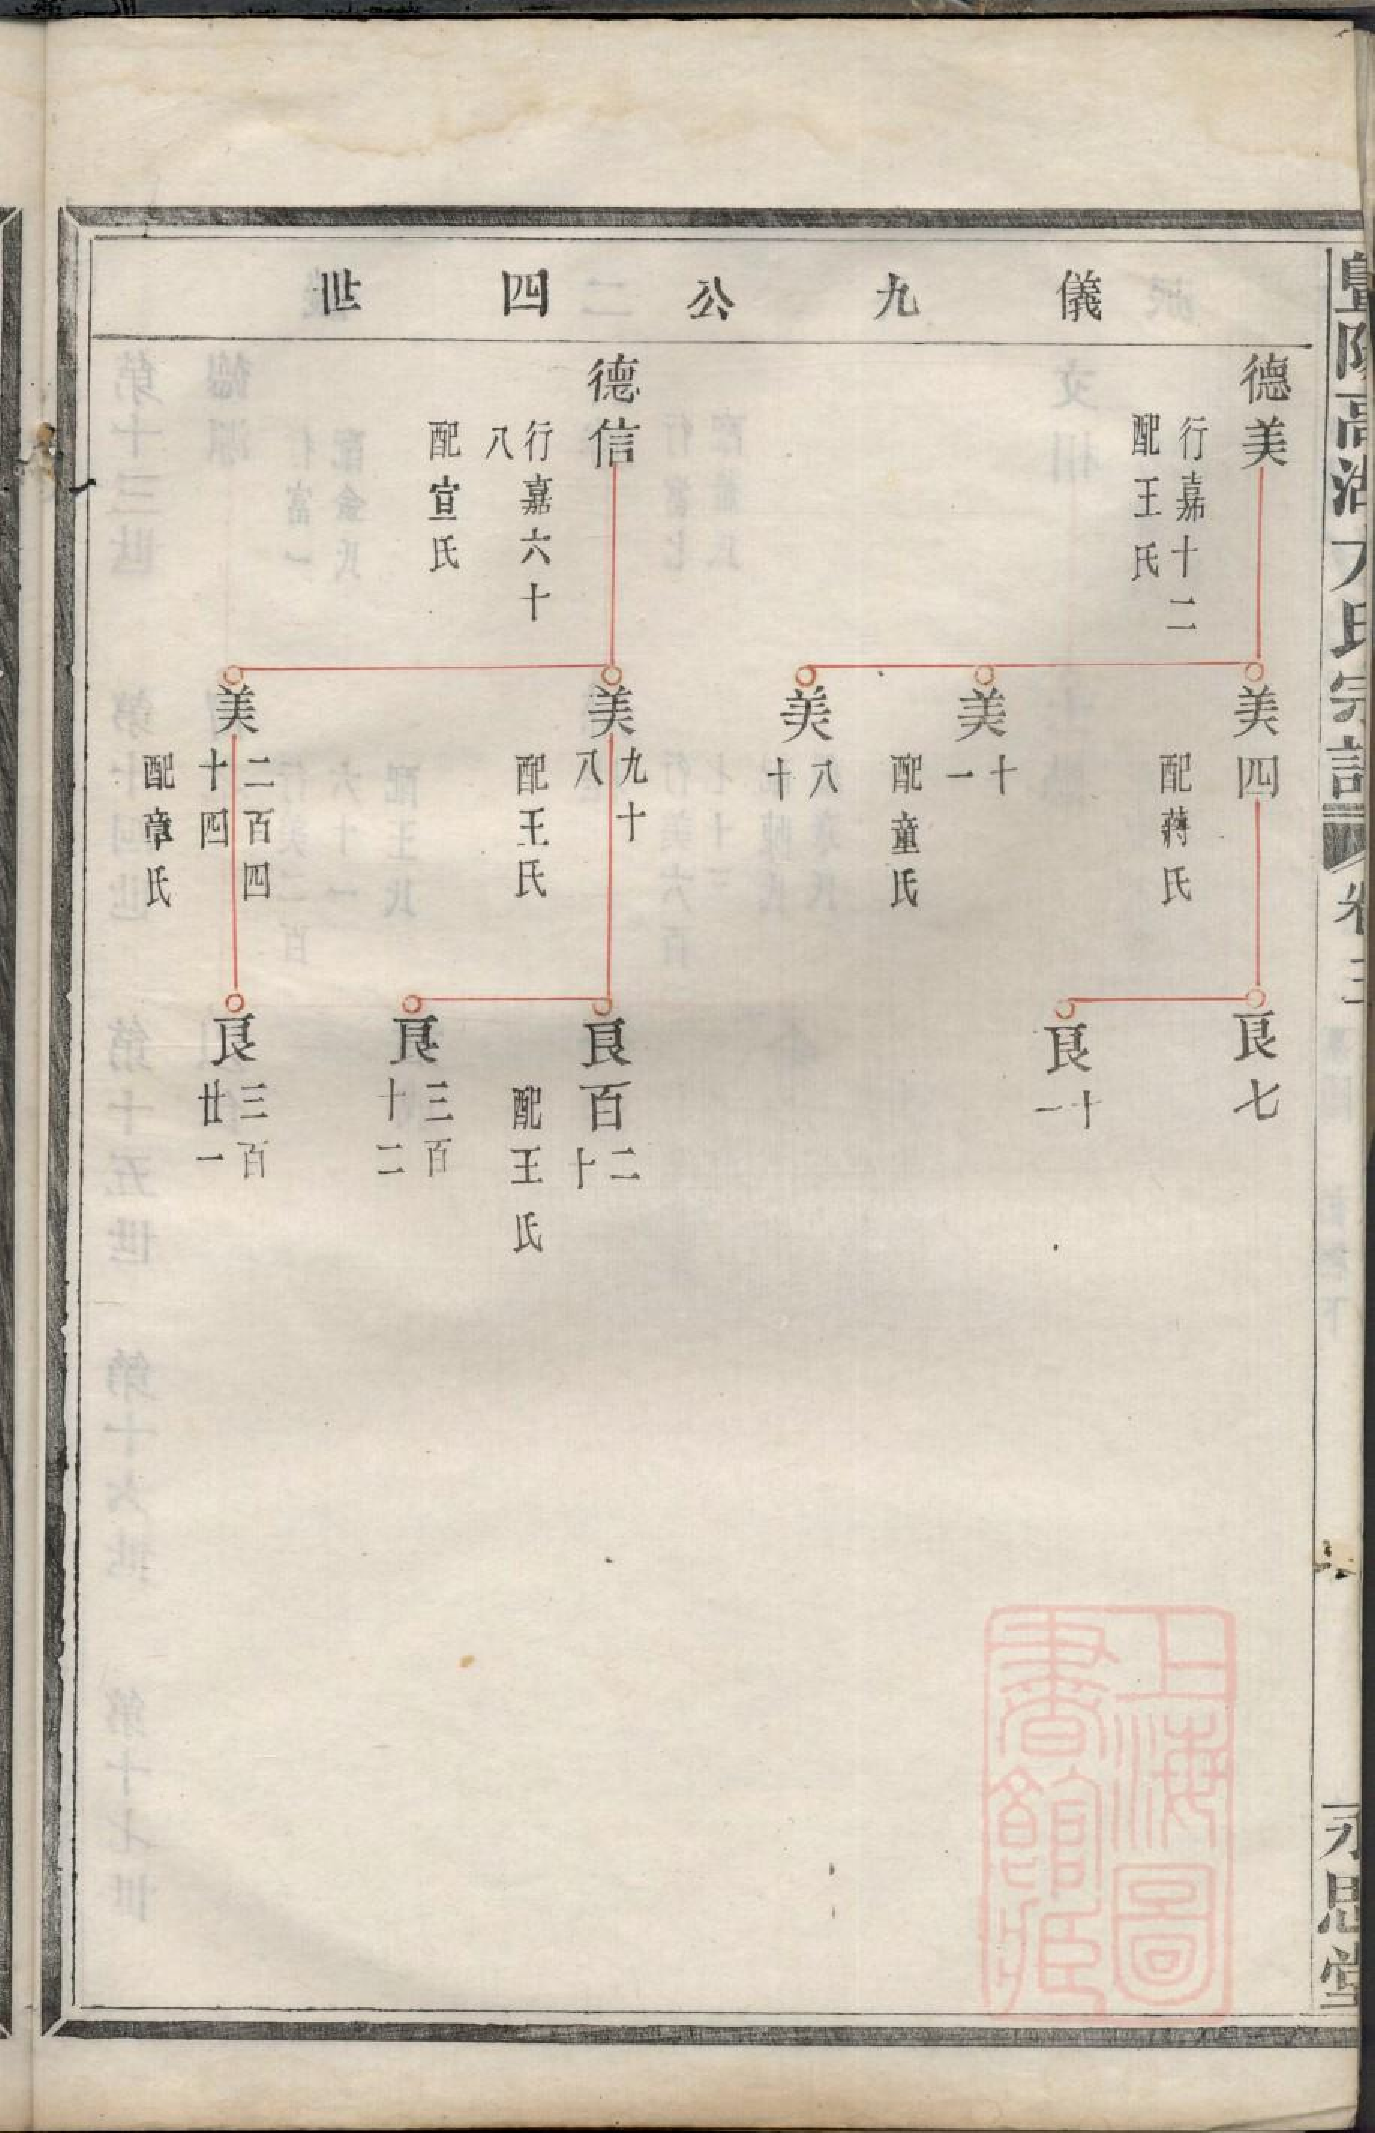 暨陽高湖方氏宗譜
卷三
永思堂
儀九公四世
德美
行嘉十二
配王氏
美四
配蔣氏
良七
良十一
美十一
配童氏
美八十
德信
行嘉六十八
配宣氏
美九十八
配王氏
良百二十
配王氏
良三百十二
美二百四十四
配章氏
良三百廿一
上海圖書館藏